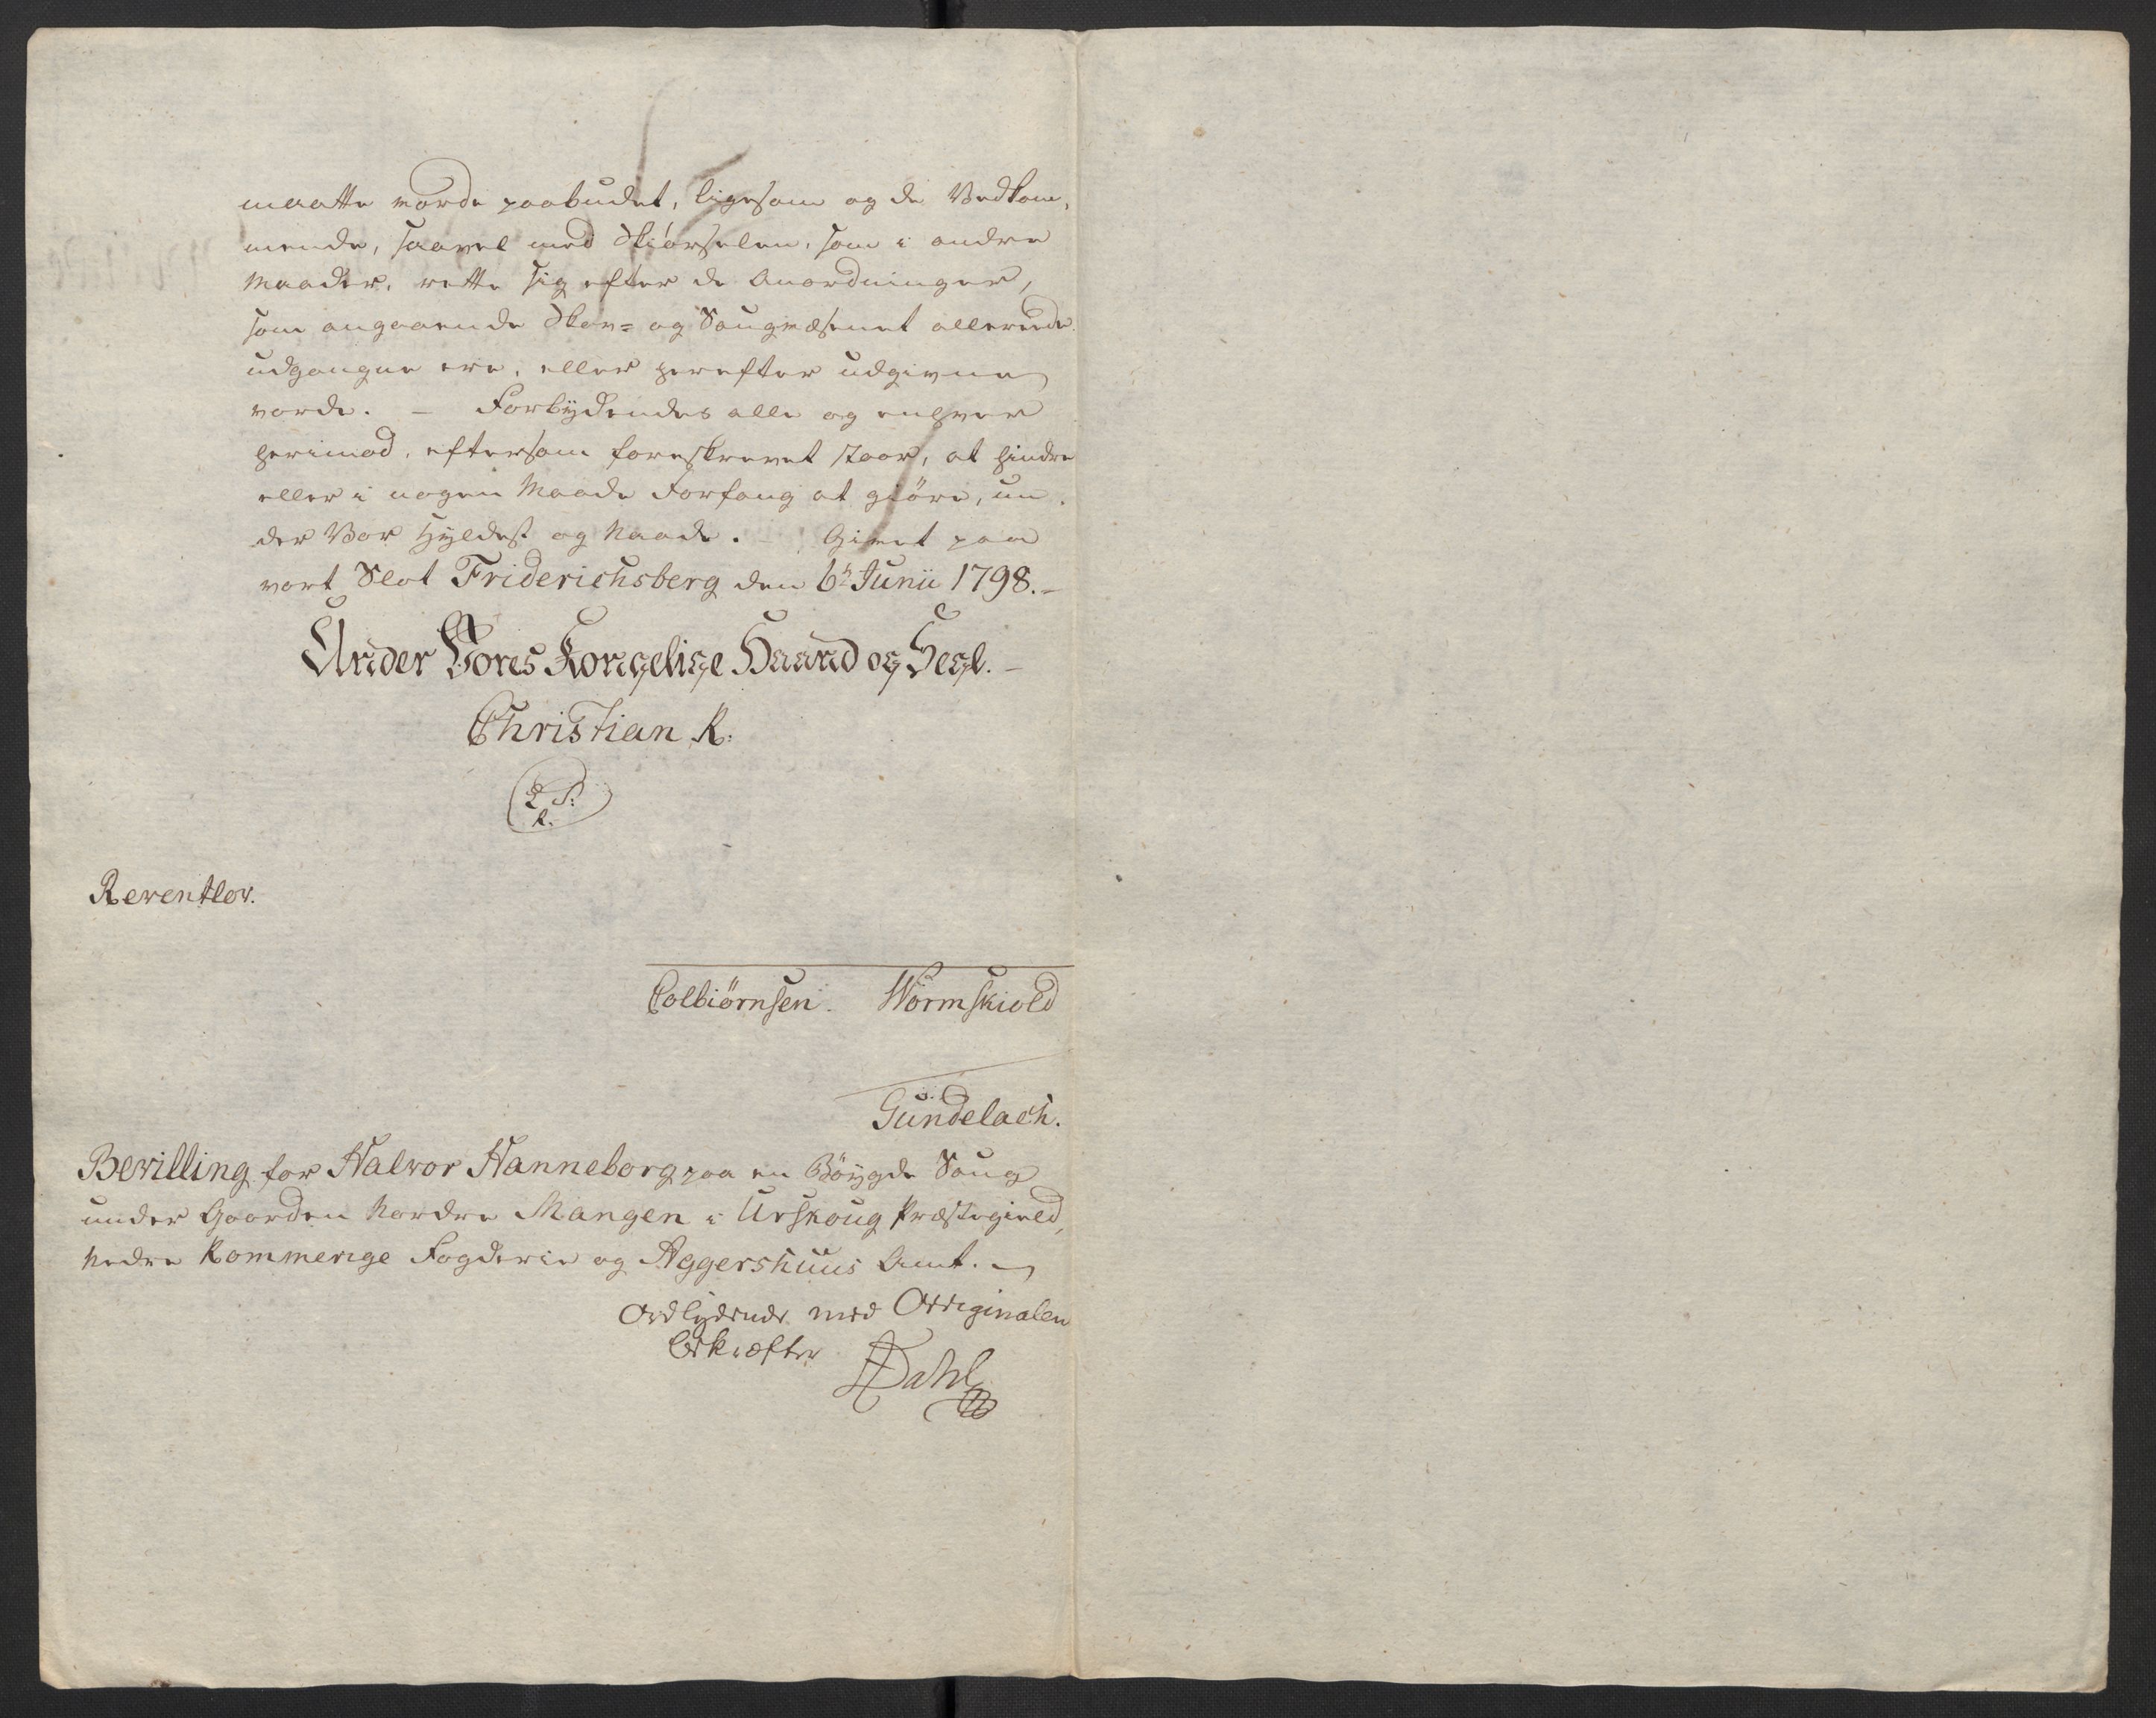 maatte vorde paabudet, ligesom og de Vedkom,
mende, saavel med Skiørselen, som i andre
Maader, rette sig efter de Anordninger,
som angaaende Skov= og Saugvæsenet allerede
udgangne ere, eller herefter udgivne
vorde. – Forbydendes alle og enhver
herimod, eftersom foreskrevet staar, at hindre
eller i nogen Maade Forfang at giøre, un,
der Vor Hyldest og Naade. – Givet paa
vort Slot Friderichsberg den 6te Junii 1798. –
Under Vores Kongelige Haand og Segl. –
Christian R.
L. S.
R.
Reventlov.
Colbiørnsen. Wormskiold
Gündelach.
Bevilling for Halvor Hanneborg paa en Bøygde Saug
under Gaarden Nordre Mangen i Urskoug Præstegield,
Nedre Rommerige Fogderie og Aggershuus Amt. –
Ordlydende med Orriginalen
bekræfter Dahl